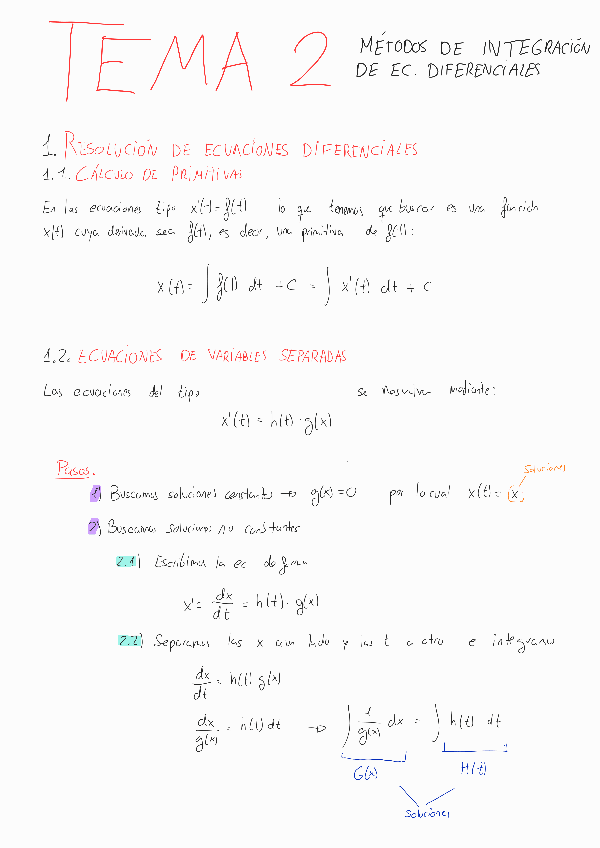 TEMA 2
MÉTODOS DE INTEGRACIÓN
DE EC. DIFERENCIALES
1. RESOLUCIÓN DE ECUACIONES DIFERENCIALES
1.1. CÁLCULO DE PRIMITIVAS
En las ecuaciones tipo x'(t)=f(t) lo que tenemos que buscar es una función
x(t) cuya derivada sea f(t), es decir, una primitiva de f(t):
x(t) = ∫ f(t) dt + C = ∫ x'(t) dt + C
1.2. ECUACIONES DE VARIABLES SEPARADAS
Las ecuaciones del tipo se resuelven mediante:
x'(t) = h(t) · g(x)
Pasos.
Soluciones
1) Buscamos soluciones constantes → g(x)=0 por lo cual x(t) = x
2) Buscamos soluciones no constantes
2.1) Escribimos la ec de forma
x' = dx/dt = h(t) · g(x)
2.2) Separamos las x a un lado y las t a otro e integramos
dx/dt = h(t) g(x)
dx/g(x) = h(t) dt → ∫ 1/g(x) dx = ∫ h(t) dt
G(x) H(t)
Soluciones